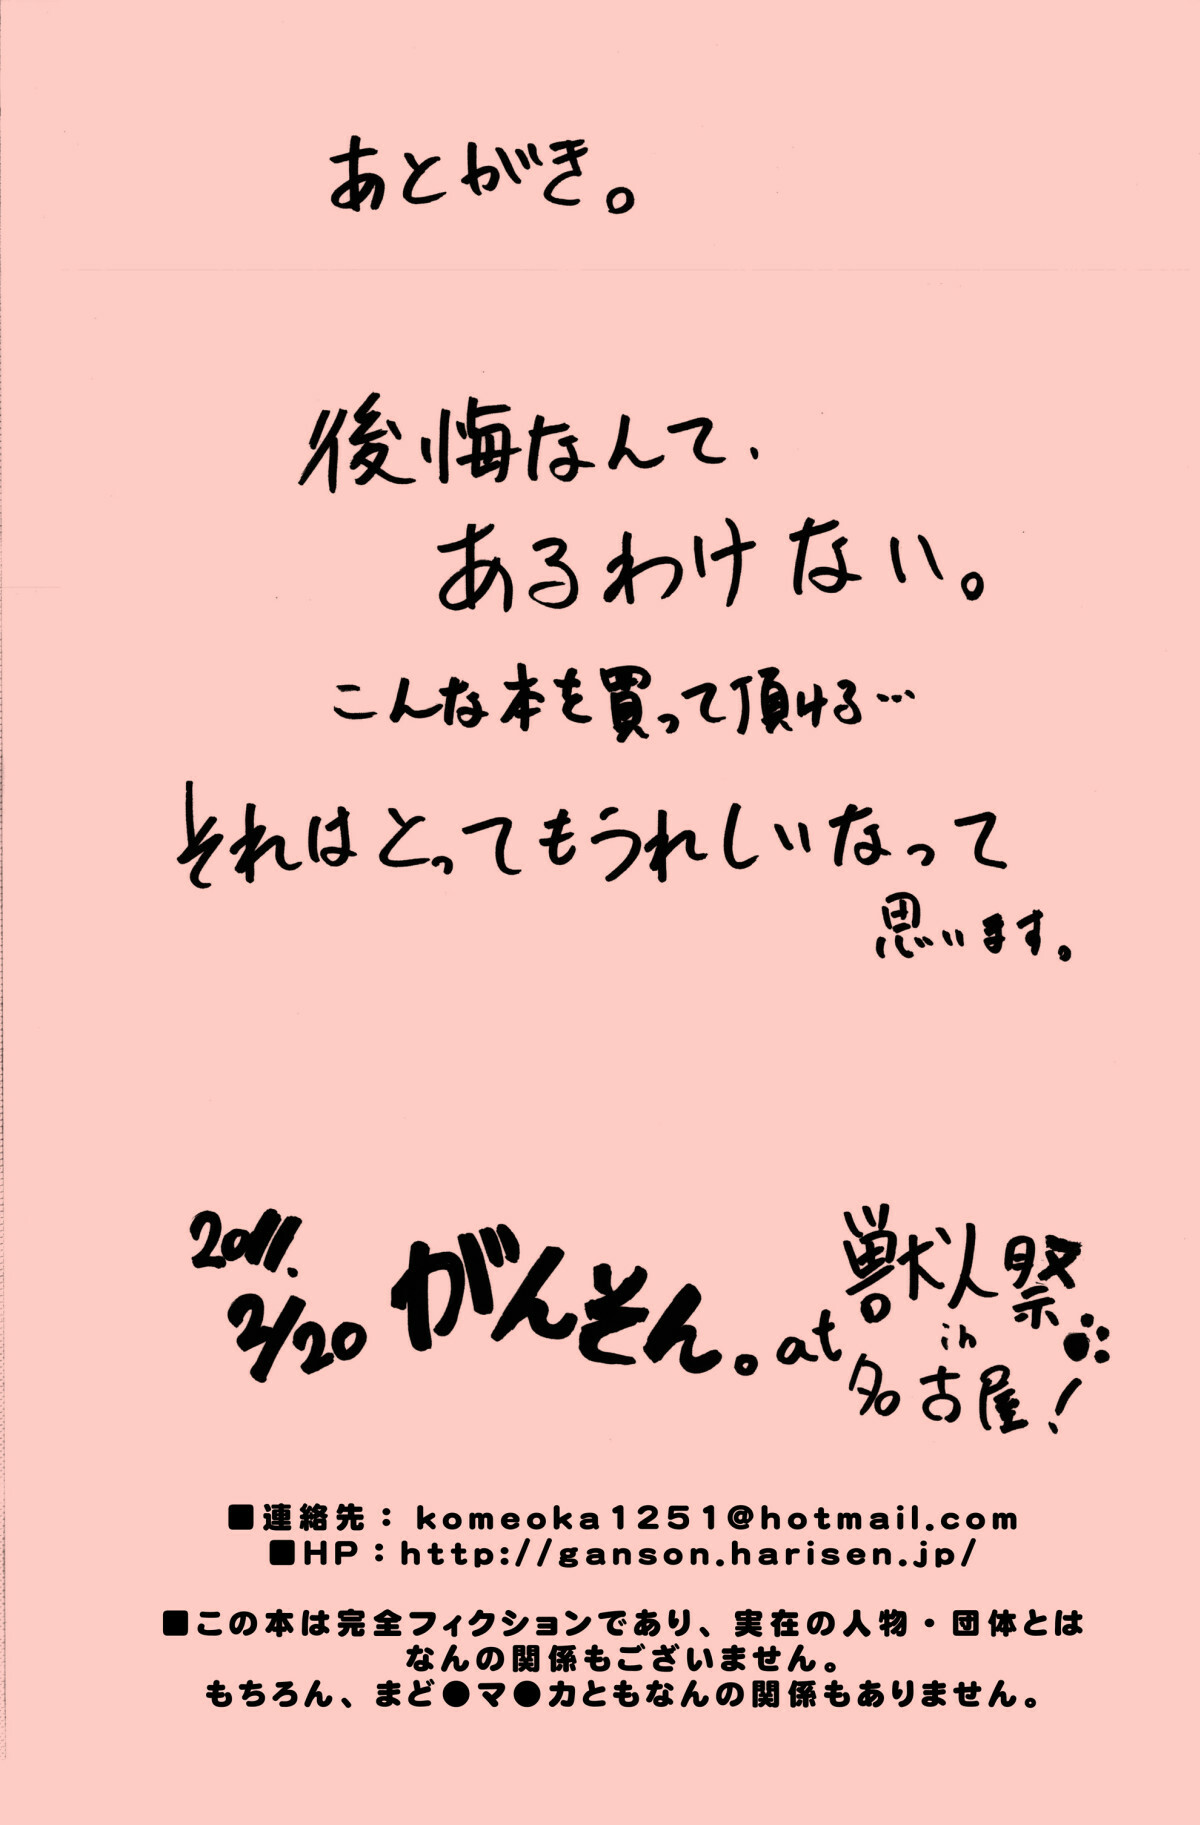 あとがき。
後悔なんて、
あるわけない。
こんな本を買って頂ける…
それはとってもうれしいなって
思います。
2011.
2/20 がんそん。at
獣人祭
in
名古屋!
■連絡先： komeoka1251@hotmail.com
■HP：http://ganson.harisen.jp/
■この本は完全フィクションであり、実在の人物・団体とは
なんの関係もございません。
もちろん、まど●マ●カともなんの関係もありません。